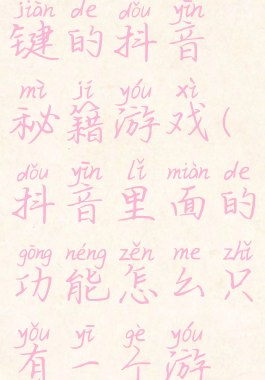 jiàn de dǒu yīn
键的抖音
mì jí yóu xì
秘籍游戏(
dǒu yīn lǐ miàn de
抖音里面的
gōng néng zěn me zhǐ
功能怎么只
yǒu yī gè yóu
有一个游